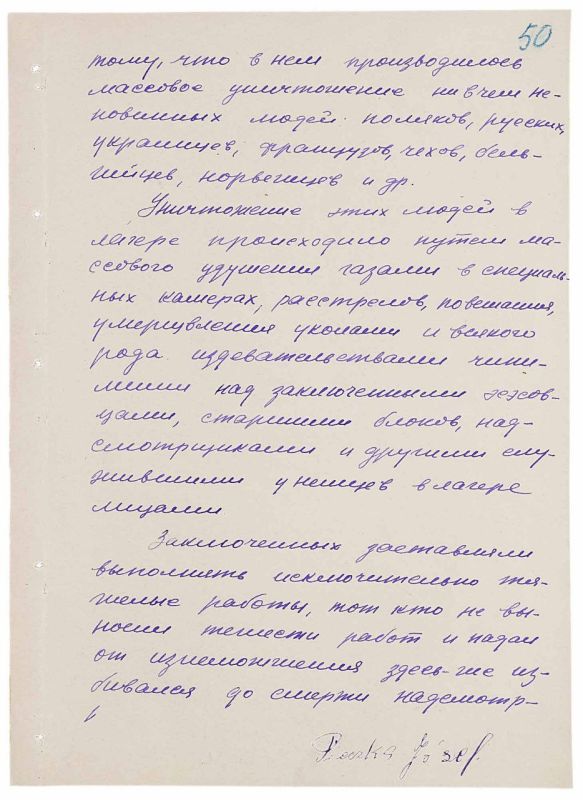 50
тому, что в нем производилось
массовое уничтожение ни в чем не-
повинных людей: поляков, русских,
украинцев, французов, чехов, бель-
гийцев, норвежцев и др.
Уничтожение этих людей в
лагере происходило путем ма-
ссового удушения газами в специаль-
ных камерах, расстрелов, повешания,
умерщвления уколами и всякого
рода издевательствами чини-
мыми над заключенными эсэсов-
цами, старшими блоков, над-
смотрщиками и другими слу-
жившими у немцев в лагере
лицами
Заключенных заставляли
выполнять исключительно тя-
желые работы, тот кто не вы-
носил тяжести работ и падал
от изнеможжения здесь-же из-
бивался до смерти надсмотр-
Józef.